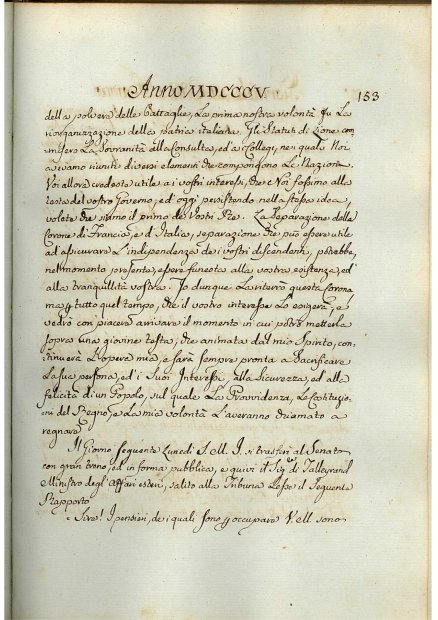 Anno MDCCCV.
153
della polvere delle Battaglie, La prima nostra volontà fu La
riorganizzazione della patria italiana. Gli Statuti di Lione com-
misero La Sovranità alla Consulta, ed a' Collegj, ne' quali Noi
avevamo riuniti diversi elementi che compongono Le Nazioni.
Voi allora credeste utile a i vostri interessi, che Noi fossimo alla
testa del vostro Governo, ed oggi persistendo nella stessa idea,
volete che siamo il primo de' Vostri Re. La Separazione delle
Corone di Francia, e d'Italia, separazione che può essere utile
ad assicurare L'independenza de i vostri discendenti, potrebbe,
nel momento presente, essere funesta alla vostra esistenza, ed
alla tranquillità vostra. Io dunque La riterrò questa Corona
ma p tutto quel tempo, che il vostro interesse Lo esigerà, e
vedrò con piacere arrivare il momento in cui potrò metterla
sopra una giovine testa, che animata dal mio Spirito, con-
tinuerà L'opera mia, e sarà sempre pronta a Sacrificare
La sua persona, ed i Suoi Interessi, alla Sicurezza, ed alla
felicità di un Popolo, sul quale La Provvidenza, Le Costituzio-
ni del Regno, e La mia volontà L'averanno chiamato a
regnare
Il Giorno seguente Lunedì S. M. I. si trasferì al Senato
con gran treno, ed in forma pubblica, e quivi il Sig. di Talleyrand
Ministro degl'Affari esteri, salito alla Tribuna Lesse il Seguente
Rapporto
Sire! I pensieri, de i quali sono p occupare V. M. sono